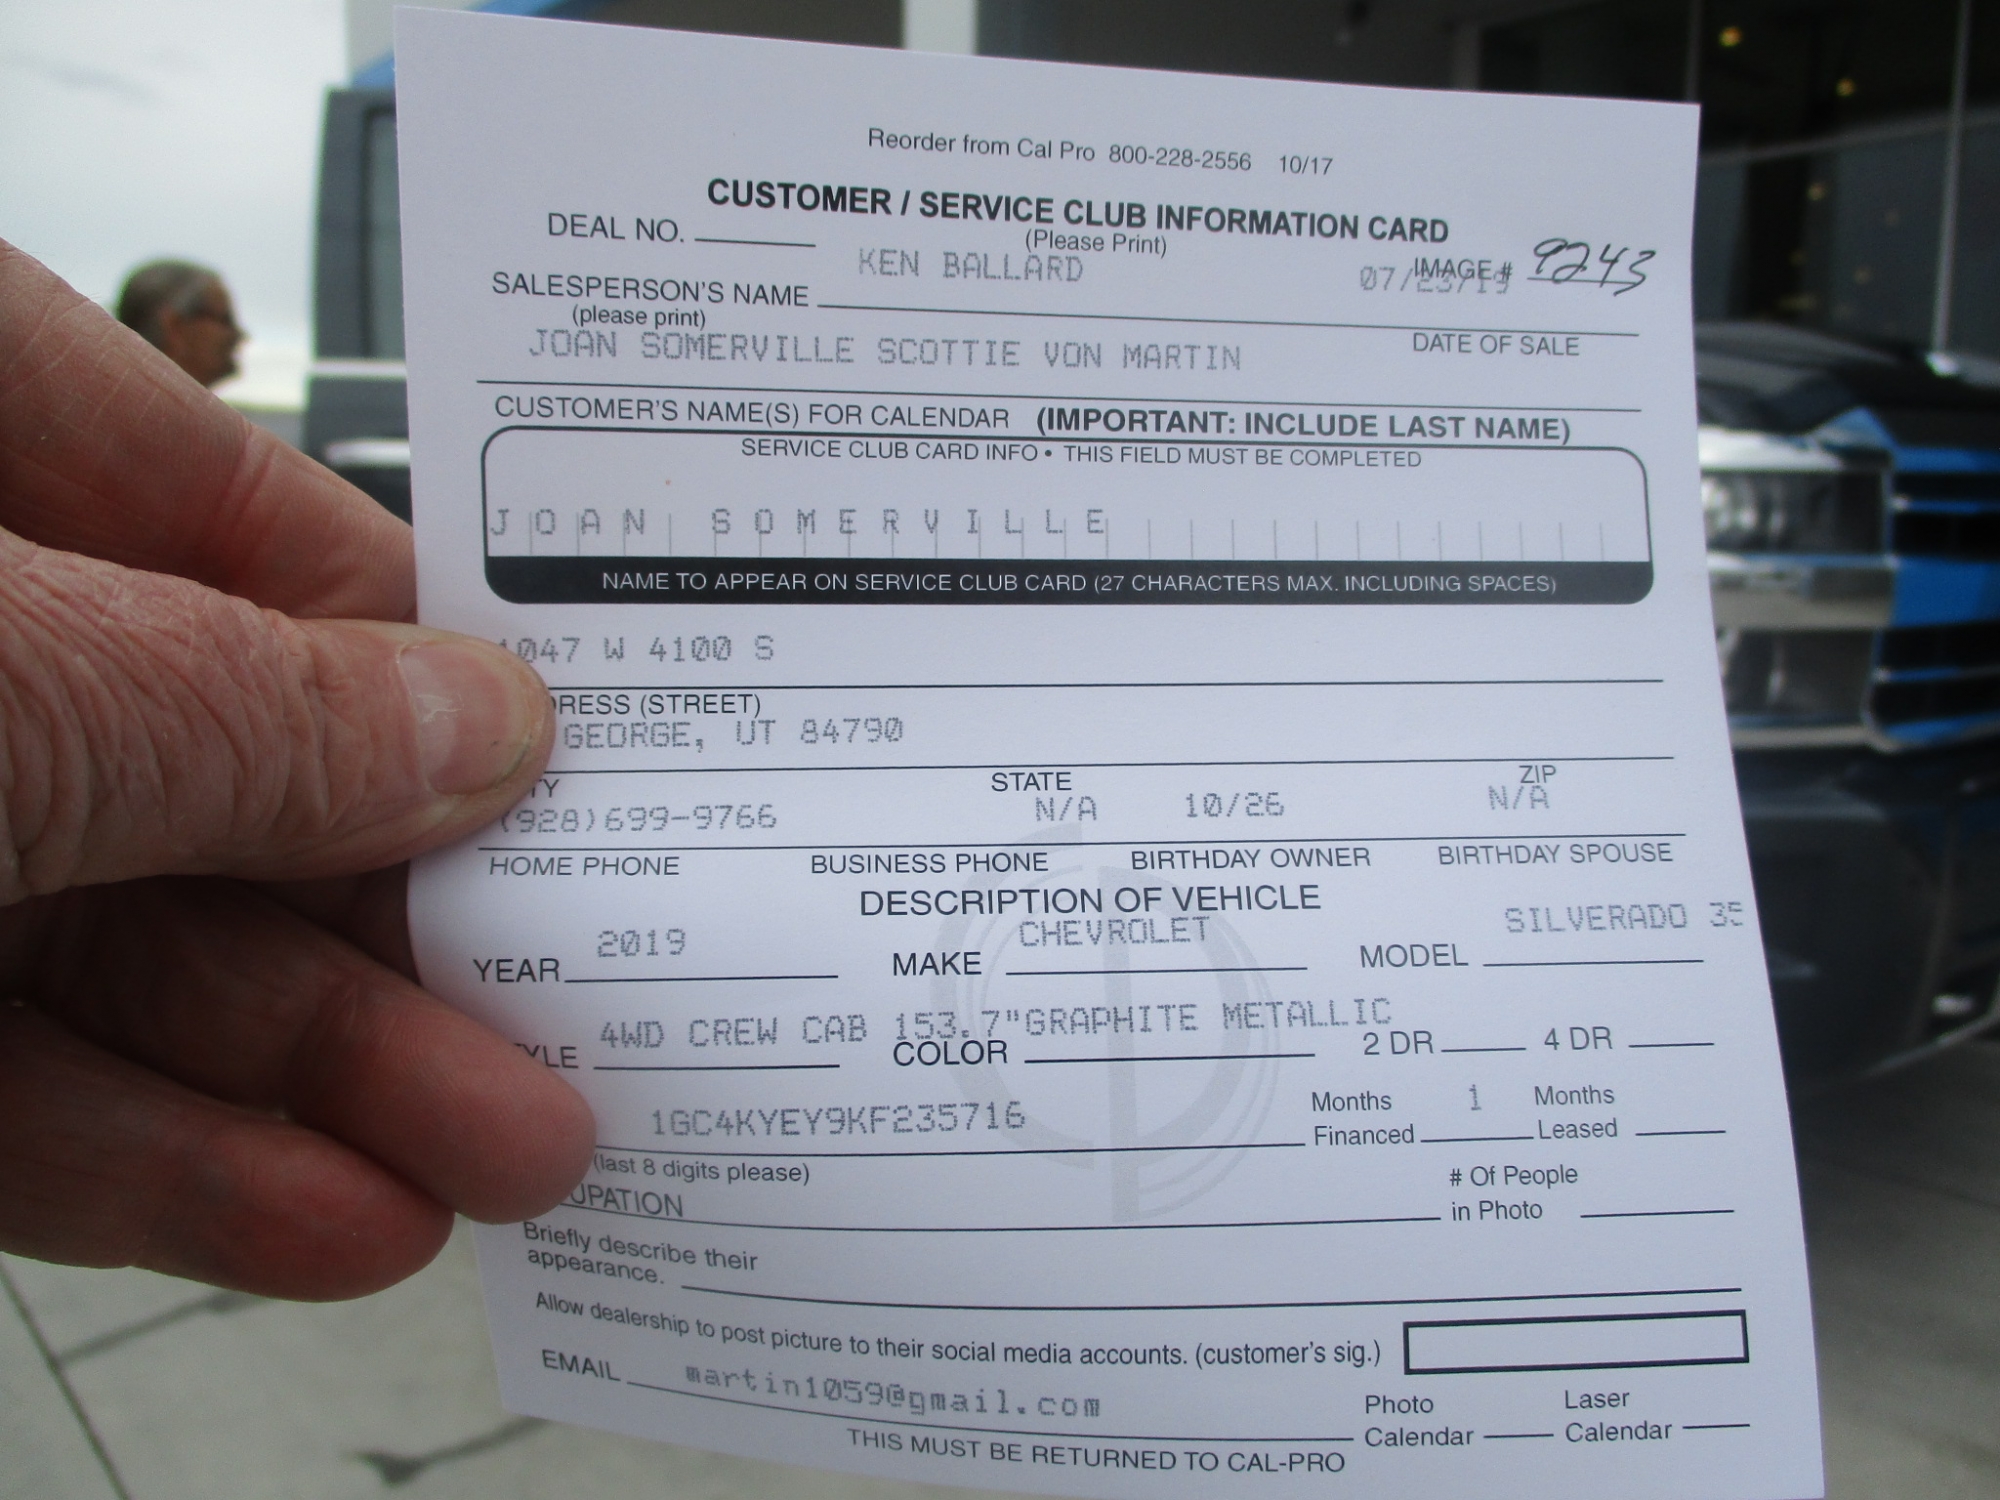 Reorder from Cal Pro 800-228-2556 10/17
CUSTOMER / SERVICE CLUB INFORMATION CARD
DEAL NO. (Please Print)
KEN BALLARD 07/23/19 IMAGE # 9243
SALESPERSON'S NAME
(please print) DATE OF SALE
JOAN SOMERVILLE SCOTTIE VON MARTIN
CUSTOMER'S NAME(S) FOR CALENDAR (IMPORTANT: INCLUDE LAST NAME)
SERVICE CLUB CARD INFO • THIS FIELD MUST BE COMPLETED
JOAN SOMERVILLE
NAME TO APPEAR ON SERVICE CLUB CARD (27 CHARACTERS MAX. INCLUDING SPACES)
1047 W 4100 S
RESS (STREET)
GEORGE, UT 84790
TY STATE ZIP
(928)699-9766 N/A 10/26 N/A
HOME PHONE BUSINESS PHONE BIRTHDAY OWNER BIRTHDAY SPOUSE
DESCRIPTION OF VEHICLE
2019 CHEVROLET SILVERADO 35
YEAR MAKE MODEL
4WD CREW CAB 153.7"GRAPHITE METALLIC
YLE COLOR 2 DR 4 DR
1GC4KYEY9KF235716 Months Financed 1 Months Leased
(last 8 digits please)
UPATION # Of People in Photo
Briefly describe their
appearance.
Allow dealership to post picture to their social media accounts. (customer's sig.)
EMAIL martin1059@gmail.com Photo Calendar Laser Calendar
THIS MUST BE RETURNED TO CAL-PRO